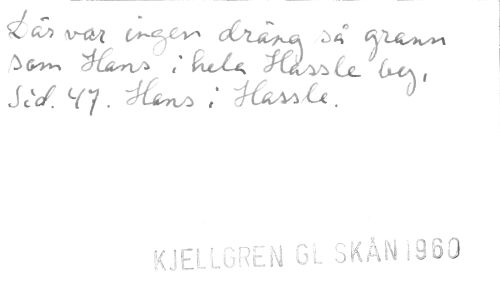 Där var ingen dräng så grann
som Hans i hela Hassle by,
Sid. 47. Hans i Hassle.
KJELLGREN GL SKÅN 1960